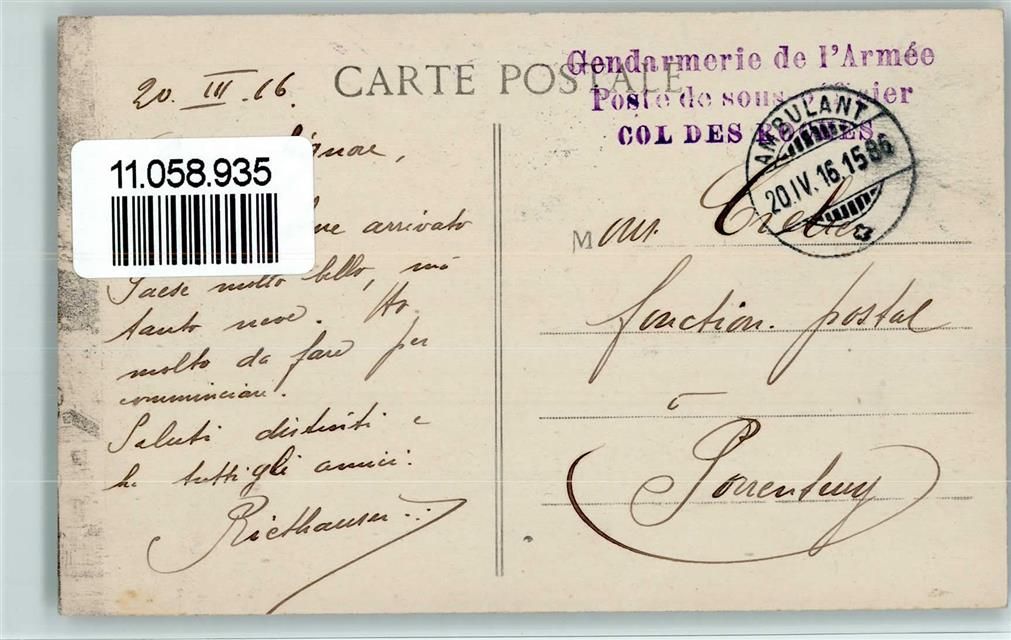 CARTE POSTALE
Gendarmerie de l'Armée
Poste de sous
COL DES ROCHES
AMBULANT
20.IV.16.15
20. III. 16.
11.058.935
arrivato
Paese molto bello, ma
tanto neve. Ho
molto da fare per
comminciare.
Saluti distinti e
he tutti gli amici.
Riethauser
fonction. postal
à
Porrentruy